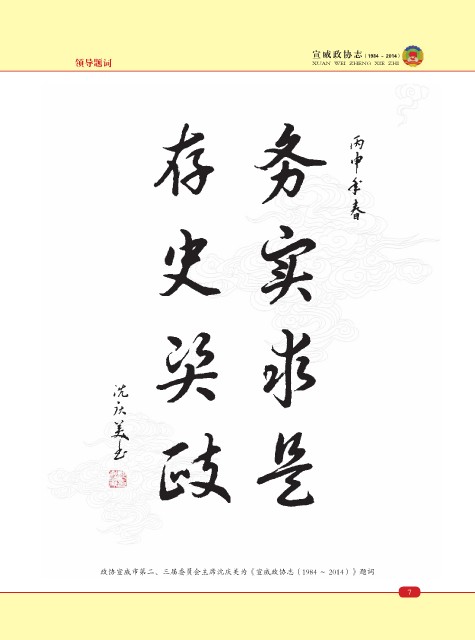 领导题词
宣威政协志（1984 - 2014）
XUAN WEI ZHENG XIE ZHI
丙申年春
务实求是
存史资政
沈庆美书
政协宣威市第二、三届委员会主席沈庆美为《宣威政协志（1984 ~ 2014）》题词
7